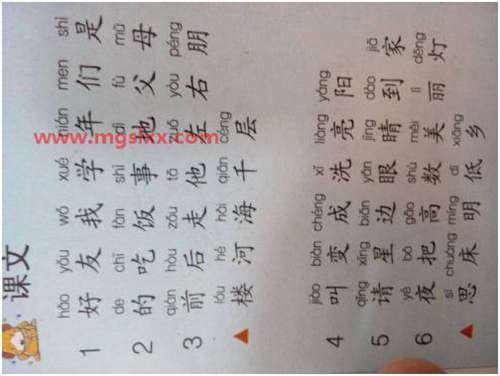 课文
hǎo yǒu wǒ xué nián men shì
1 好 友 我 学 年 们 是
de chī fàn shì dì fù mǔ
2 的 吃 饭 事 地 父 母
qián hòu zǒu tā zuǒ yòu péng
3 前 后 走 他 左 右 朋
lóu hé hǎi qiān céng
▲ 楼 河 海 千 层
jiào biàn chéng xǐ liàng yáng
4 叫 变 成 洗 亮 阳
qǐng xīng biān yǎn jīng dào jiā
5 请 星 边 眼 睛 到 家
yè bǎ gāo shù měi lì dēng
6 夜 把 高 数 美 丽 灯
sī chuáng míng dī xiāng
▲ 思 床 明 低 乡
www.mgslxx.com